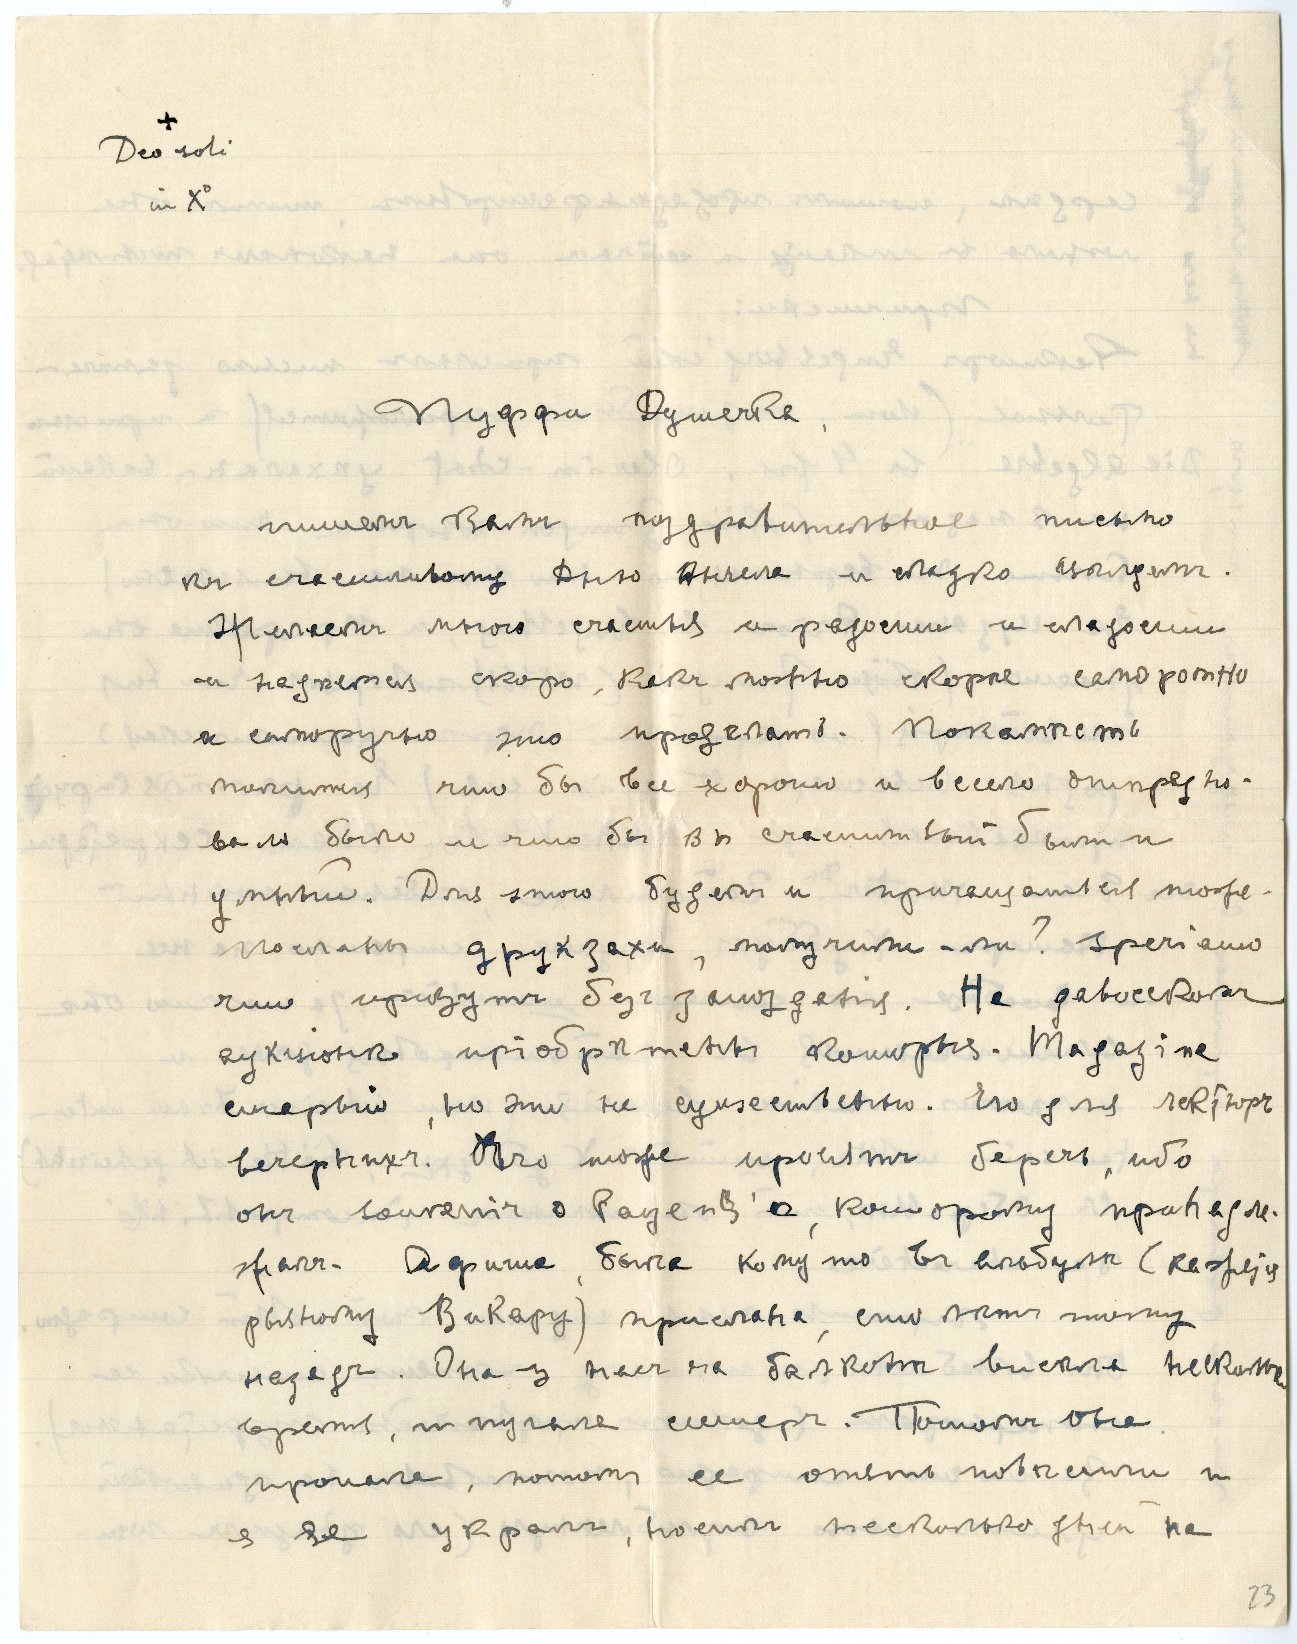 +
Deo soli
in X°
Пуффи Душечка,
пишемъ Вамъ поздравительное письмо
къ счастливому Дню Ангела и сладко цѣлуемъ.
Желаемъ много счастья и радости и сладости
и надѣемся скоро, какъ можно скорѣе саморотно
и саморучно это продѣлать. Покамѣсть
молимся что бы все хорошо и весело отпраздно-
вано было и что бы Вы счастливый были и
умный. Для этого будемъ и причащаться тоже.
Посланы друкзахи, получили-ли? speriamo
что придутъ безъ запозданія. На давосскомъ
аукціонѣ пріобрѣтены которые. Magazine
старый, но это не существенно. Его для лекторъ
вечернихъ. Его тоже просятъ беречь, ибо
онъ souvenir о, которому принадле-
жалъ. Афиша, была кому то въ альбумъ (кажется
рьяному Викару) прислана, сто лѣтъ тому
назадъ. Она у насъ на балконѣ висѣла нѣсколько
время, и пугала сестеръ. Потомъ она
пропала, потомъ ее опять повѣсили и
я ее укралъ, носилъ нѣсколько дней на
23